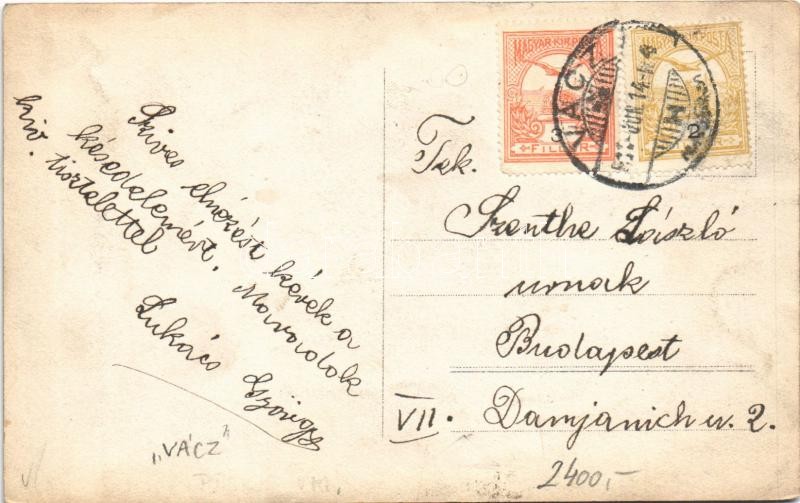 Szives elnézést kérek a
késedelemért. Maradok
kiv. tisztelettel
Lukács György
"VÁCZ"
MAGYAR KIR. POSTA
3
FILLÉR
MAGYAR KIR. POSTA
2
VÁCZ
JUN 14
Tek.
Szenthe László
urnak
Budapest
VII. Damjanich u. 2.
2400,-